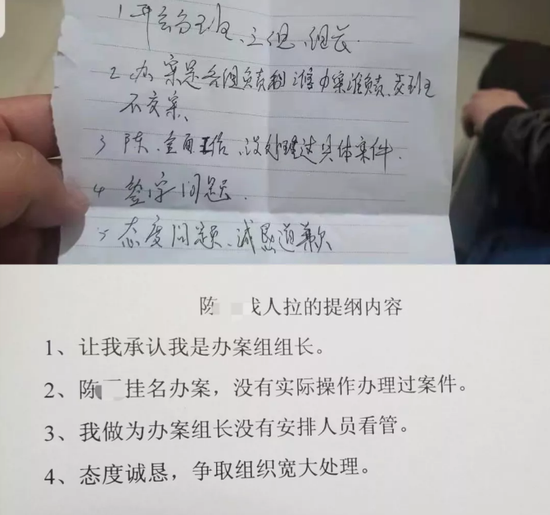 2 办案是各组负责制 谁办案谁负责、交班
不交案、
3 陈、全面工作、没处理过具体案件.
4 签字问题.
5 态度问题、诚恳道歉
陈 找人拉的提纲内容
1、让我承认我是办案组组长。
2、陈 挂名办案，没有实际操作办理过案件。
3、我做为办案组长没有安排人员看管。
4、态度诚恳，争取组织宽大处理。